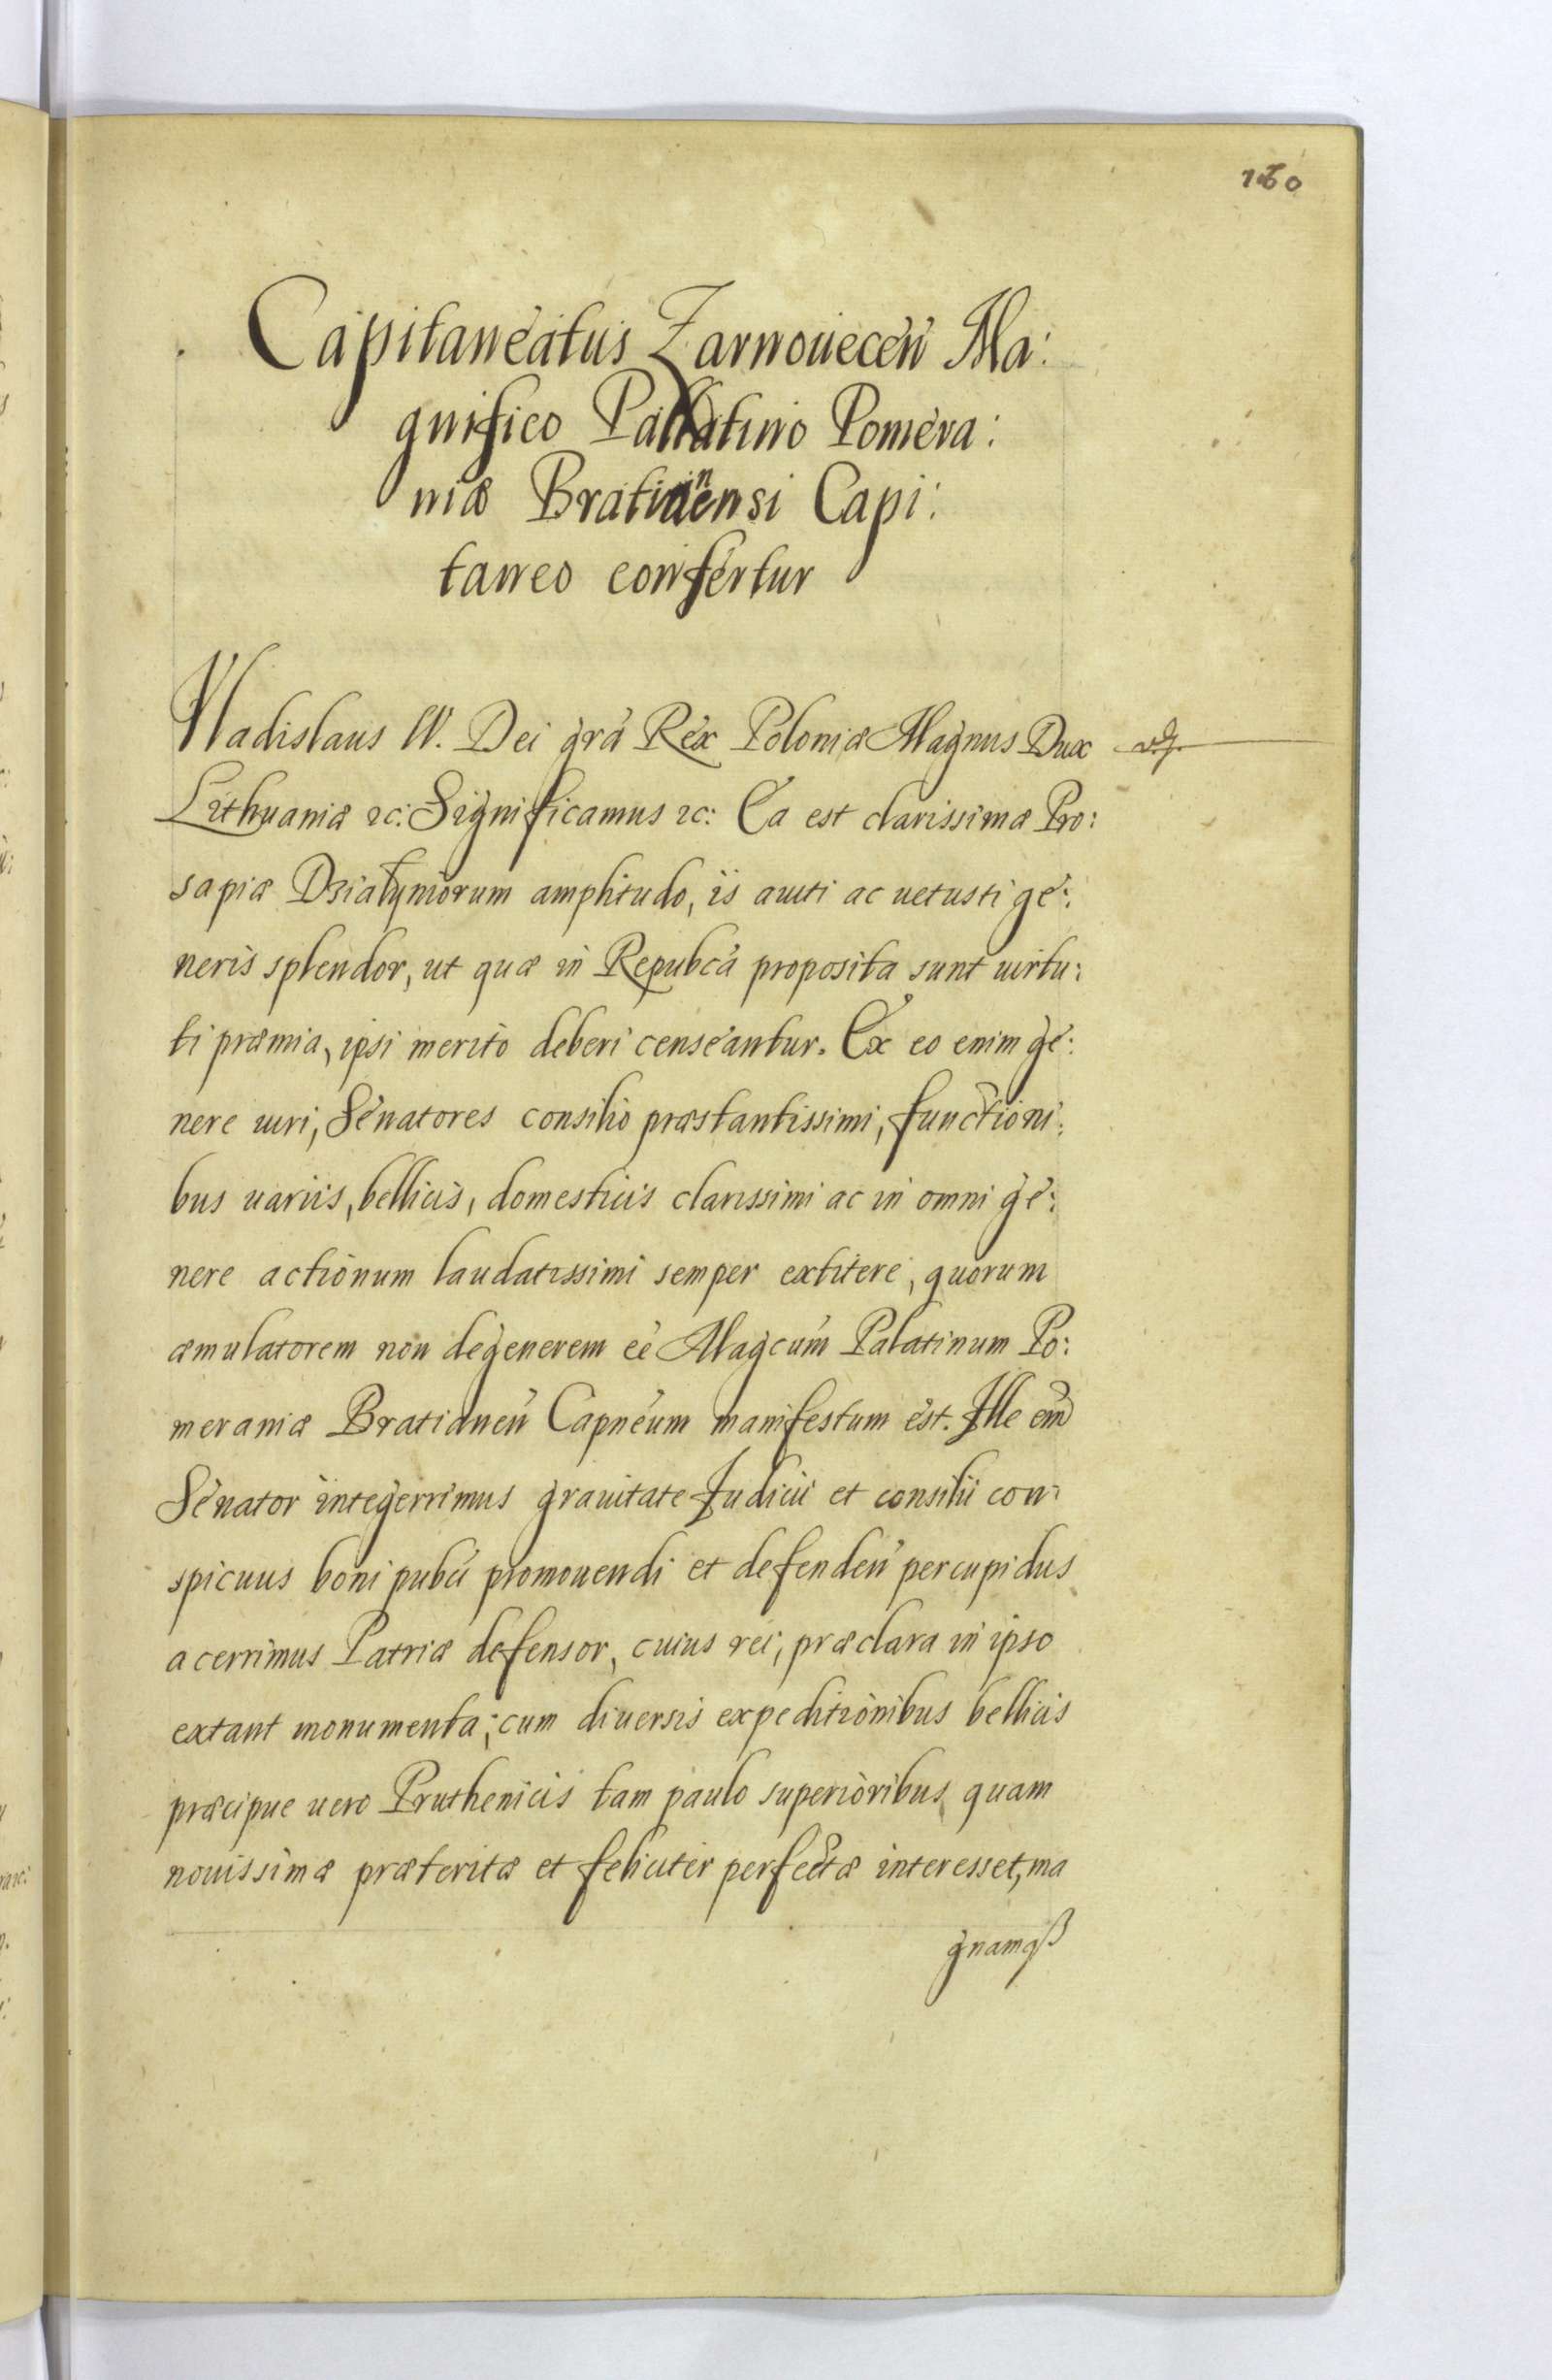 160
Capitaneatus Zarnouecen̄ Ma:
gnifico Pallatino Pomera:
niæ Bratianensi Capi:
taneo confertur
Vladislaus IV. Dei grã Rex Poloniæ Magnus Dux
Lithuaniæ ꝛc: Significamus ꝛc: Ea est clarissimæ Pro:
sapiæ Dzialyniorum amplitudo, is auiti ac uetusti ge:
neris splendor, ut quæ in Repubcã proposita sunt uirtu:
ti præmia, ipsi merito deberi censeantur. Ex eo enim ge:
nere uiri, Senatores consilio præstantissimi, functioni:
bus uariis, bellicis, domesticis clarissimi ac in omni ge:
nere actionum laudatissimi semper extitere, quorum
æmulatorem non degenerem eẽ Magcum Palatinum Po:
meraniæ Bratianen̄ Capneum manifestum est. Ille em̃
Senator integerrimus grauitate Iudicii et consilii con:
spicuus boni pubci promouendi et defenden̄ percupidus
acerrimus Patriæ defensor, cuius rei, præclara in ipso
extant monumenta; cum diuersis expeditionibus bellicis
præcipue uero Pruthenicis tam paulo superioribus quam
nouissimæ præteritæ et feliciter perfectæ interesset, ma
gnamqß